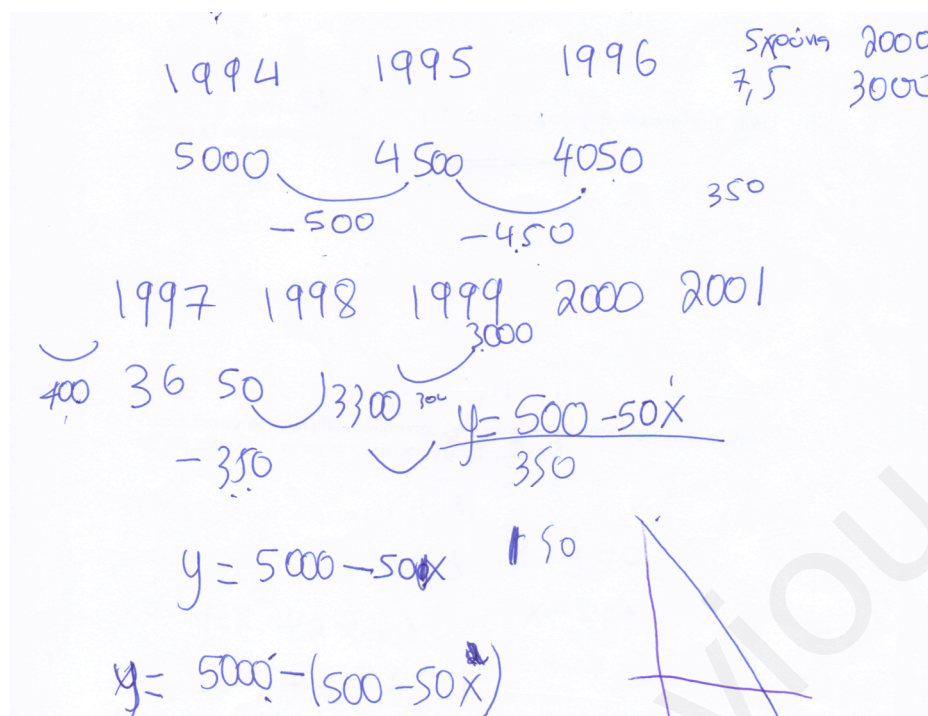 1994 1995 1996 5χρόνια 2000
7,5 3000
5000 4500 4050
350
-500 -450
1997 1998 1999 2000 2001
3000
400 3650 3300 300
y = 500 - 50x
-350 350
y = 5000 - 50x 50
y = 5000 - (500 - 50x)
viou